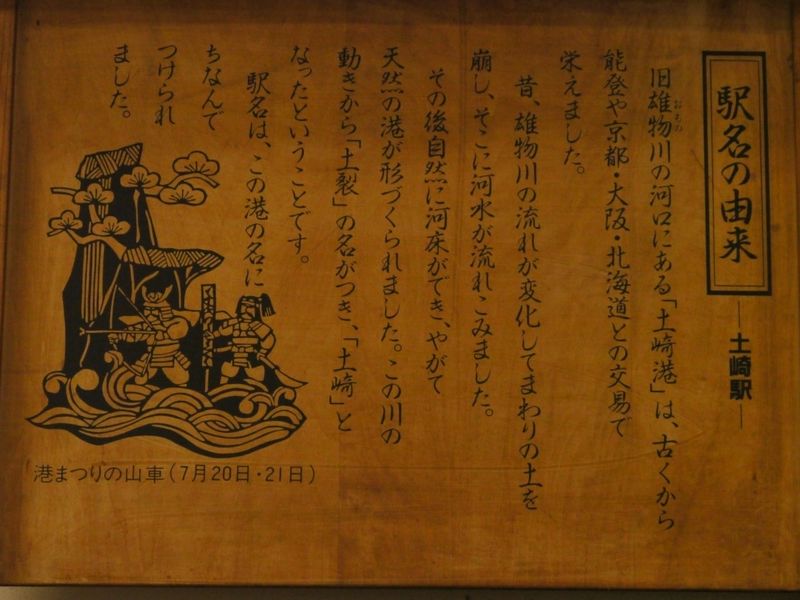 駅名の由来
―土崎駅―
旧雄物川の河口にある「土崎港」は、古くから
おもの
能登や京都・大阪・北海道との交易で
栄えました。
昔、雄物川の流れが変化してまわりの土を
崩し、そこに河水が流れこみました。
その後自然に河床ができ、やがて
天然の港が形づくられました。この川の
動きから「土裂」の名がつき、「土崎」と
なったということです。
駅名は、この港の名に
ちなんで
つけられ
ました。
港まつりの山車(7月20日・21日)